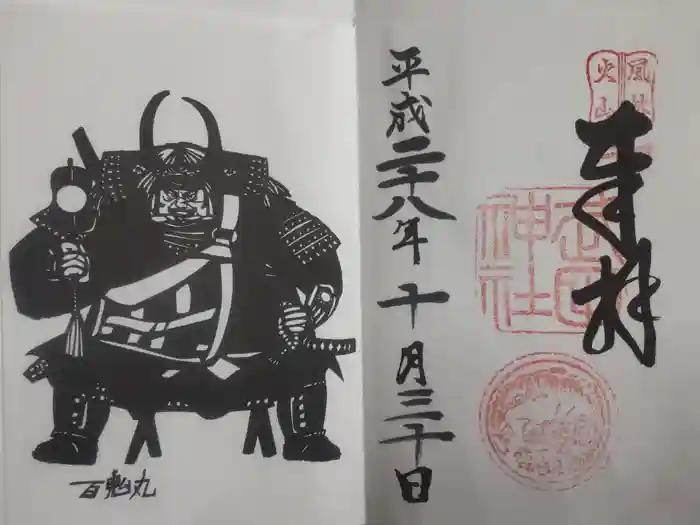 風林
火山
奉拝
武田
神社
平成二十八年 十月三十日
百鬼丸